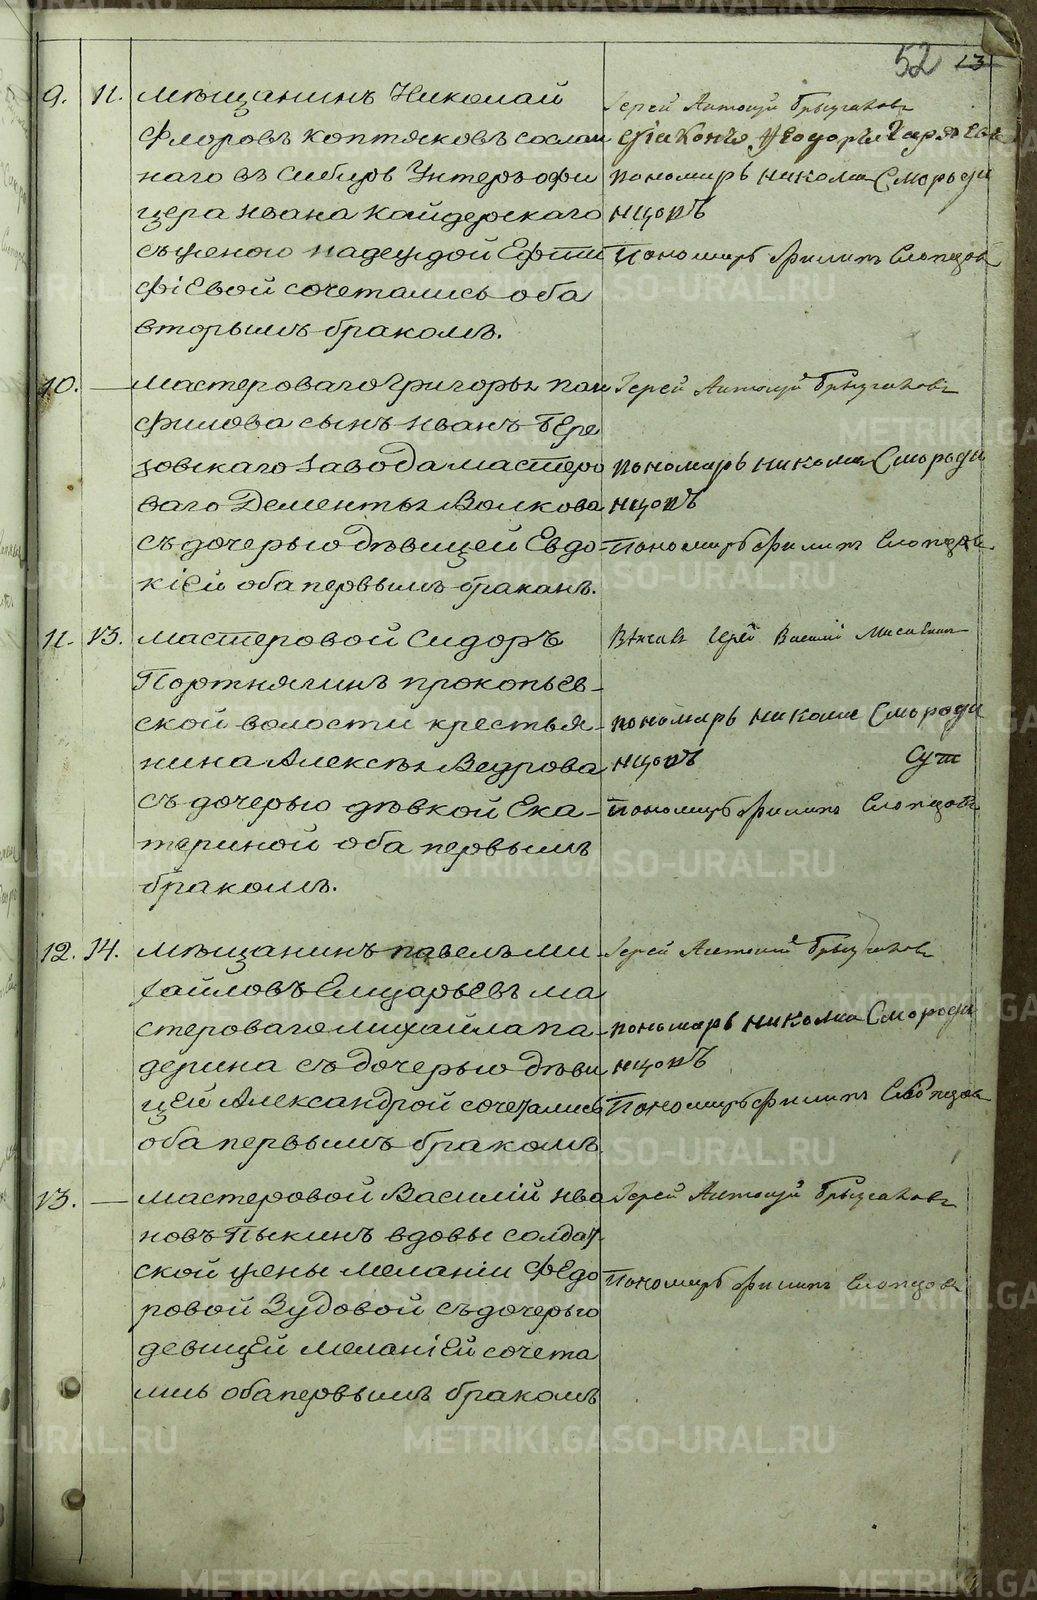 52 13
9. 11. Мѣщанинъ Николай
Флоровъ Коптяковъ сослан
наго въ Сибирь Унтеръ офи
цера Ивана Кайдерскаго
съ женою Надеждой Ефти
фіевой сочетались оба
вторымъ бракомъ.
Іерей Антоній
Діаконъ Феодоръ
пономарь Никола Смороди
нцовъ
Пономарь Филипъ Слопцовъ
10. — Мастероваго Григорья Пан
филова сынъ Иванъ Бере
зовскаго завода мастеро
ваго Дементья Волкова
съ дочерью дѣвицей Евдо-
кіей оба первымъ бракамъ.
Іерей Антоній
пономарь Никола Смороди
нцовъ
Пономарь Филипъ Слопцовъ
11. 13. мастеровой Сидоръ
Портнягинъ прокопьев-
ской волости крестья-
нина Алексѣя Ведрова
съ дочерью дѣвкой Ека-
териной оба первымъ
бракомъ.
Вѣнчалъ Іерей Василій
пономарь Никола Смороди
нцовъ
Пономарь Филипъ Слопцовъ
12. 14. Мѣщанинъ павелъ Ми-
хайловъ Елизарьевъ ма
стероваго Михайла Па-
дерина съ дочерью дѣви
цей Александрой сочетались
оба первымъ бракомъ
Іерей Антоній
пономарь Никола Смороди
нцовъ
Пономарь Филипъ Слопцовъ
13. — мастеровой Василій Ива
новъ Пыкинъ вдовы солдат
ской жены Меланіи Федо
ровой Зудовой съ дочерью
девицей Меланіей сочета
лись оба первымъ бракомъ
Іерей Антоній
Пономарь Филипъ Слопцовъ
METRIKI.GASO-URAL.RU